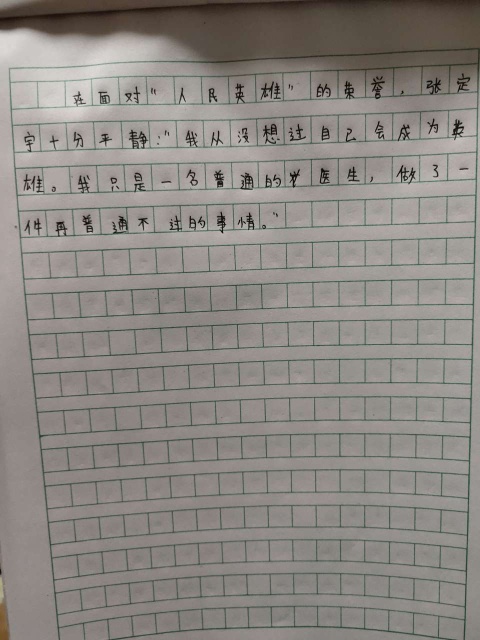 在面对“人民英雄”的荣誉，张定
宇十分平静：“我从没想过自己会成为英
雄。我只是一名普通的医生，做了一
件再普通不过的事情。”